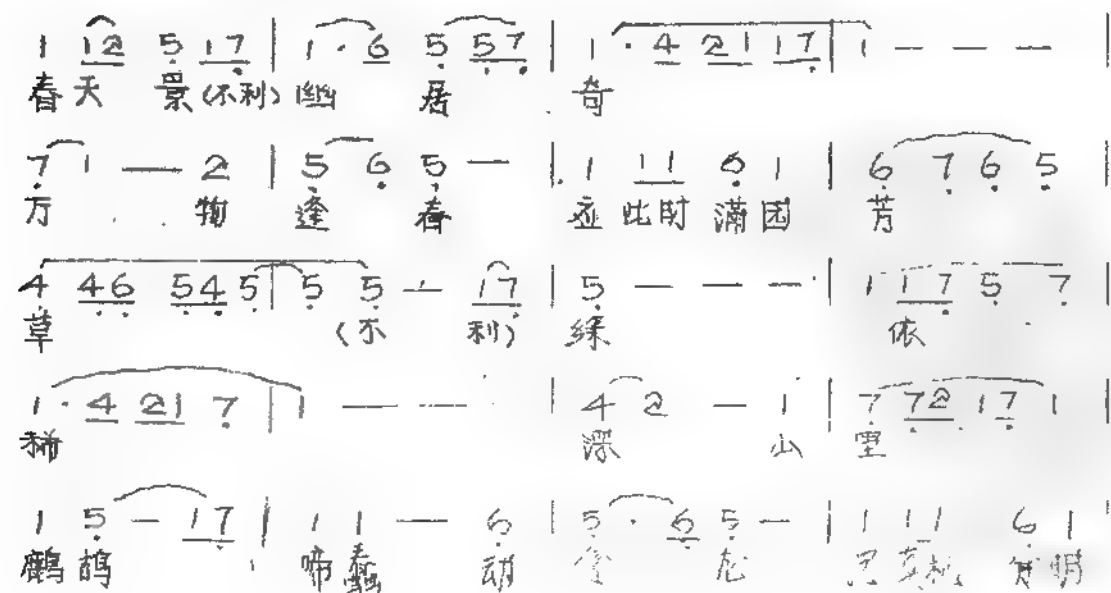 1 12 5 17 | 1 · 6 5 57 | 1 · 4 21 17 | 1 — — —
春天 景(不利) 幽 居 奇
7 1 — 2 | 5 6 5 — | 1 11 6 1 | 6 7 6 5
万 物 逢 春 应 此时 满园 芳
4 46 545 | 5 5 — 17 | 5 — — — | 1 17 5 7
草 (不 利) 绿 依
1 · 4 21 7 | 1 — — | 4 2 — 1 | 7 72 17 1
稀 深 山 里
1 5 — 17 | 1 1 — 6 | 5 · 6 5 — | 1 11 6 1
鹧鸪 啼 春